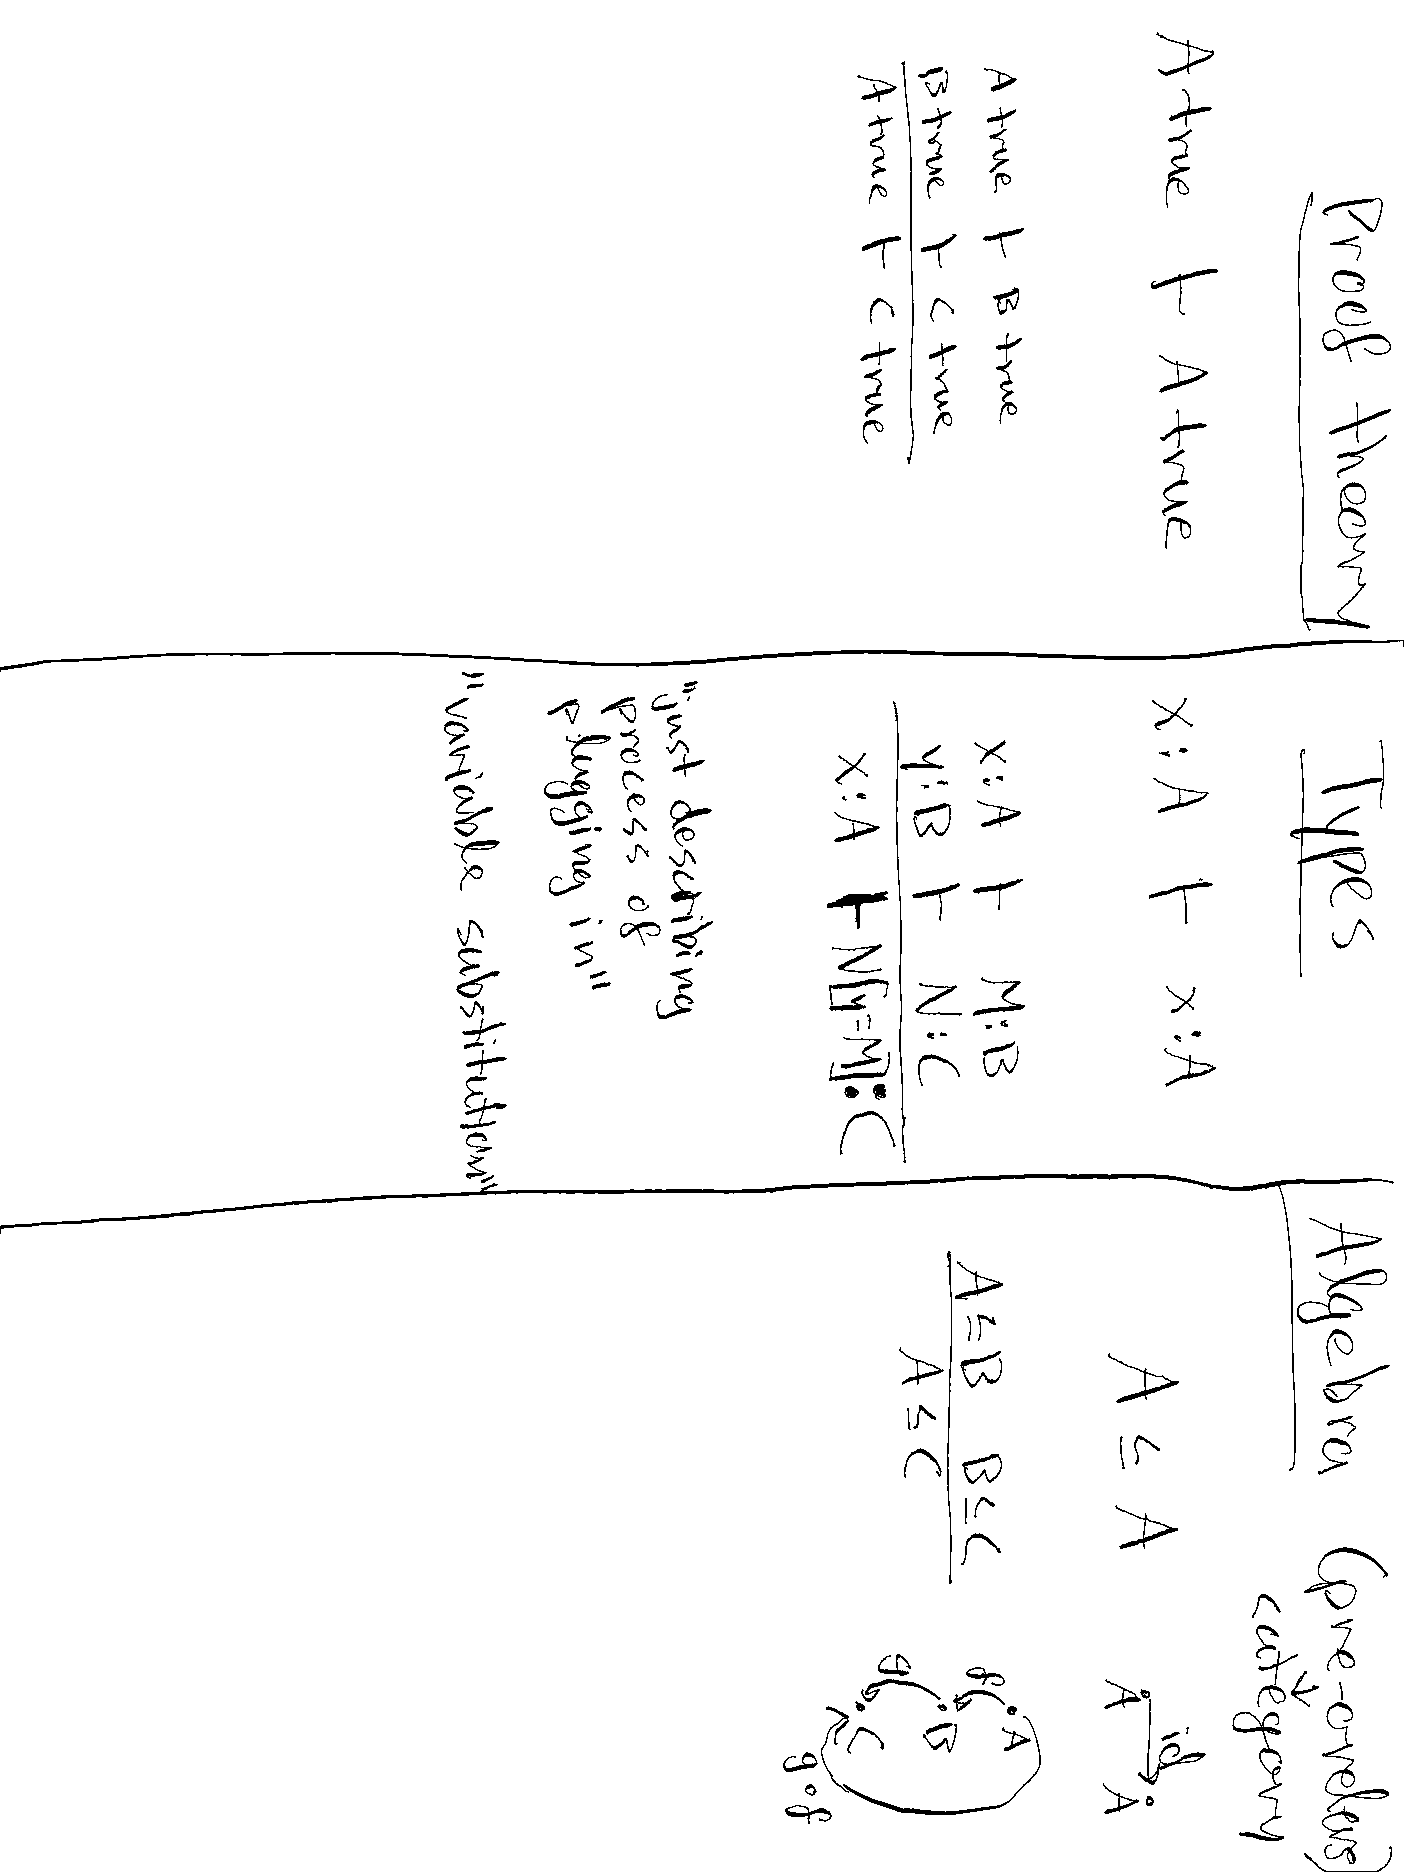 Proof theory
A true ⊢ A true
A true ⊢ B true
B true ⊢ C true
A true ⊢ C true
Types
x:A ⊢ x:A
x:A ⊢ M:B
y:B ⊢ N:C
x:A ⊢ N[y=M]:C
"just describing
process of
plugging in"
"variable substitution"
Algebra (pre-orders)
↓
category
A ≤ A
A≤B B≤C
A ≤ C
id
A A
f A
B
g C
g∘f